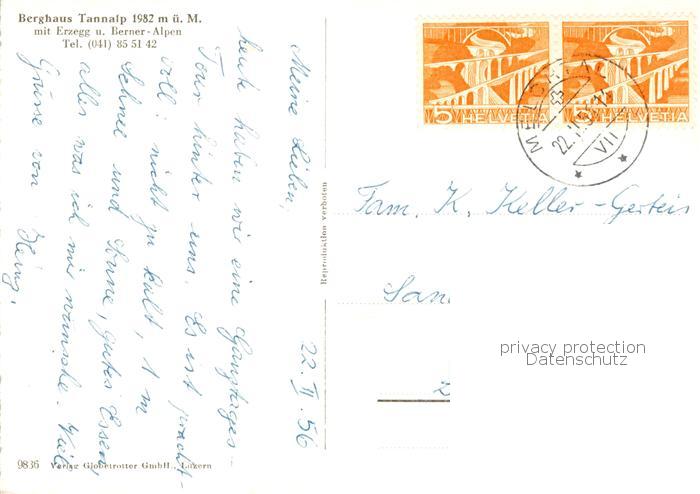 Berghaus Tannalp 1982 m ü. M.
mit Erzegg u. Berner-Alpen
Tel. (041) 85 51 42
22. II. 56
Meine Lieben,
heute haben wir eine Ganztages-
Tour hinter uns. Es ist pracht-
voll, nicht zu kalt, 1 m
Schnee und Sonne, gutes Essen,
alles was ich mir wünsche. Viele
Grüsse von
Heinz.
9836 Verlag Globetrotter GmbH., Luzern
Reproduktion verboten
5 HELVETIA
5 HELVETIA
MELCH
22.II.56
VII
Fam. K. Keller-Gerteis
San
privacy protection
Datenschutz